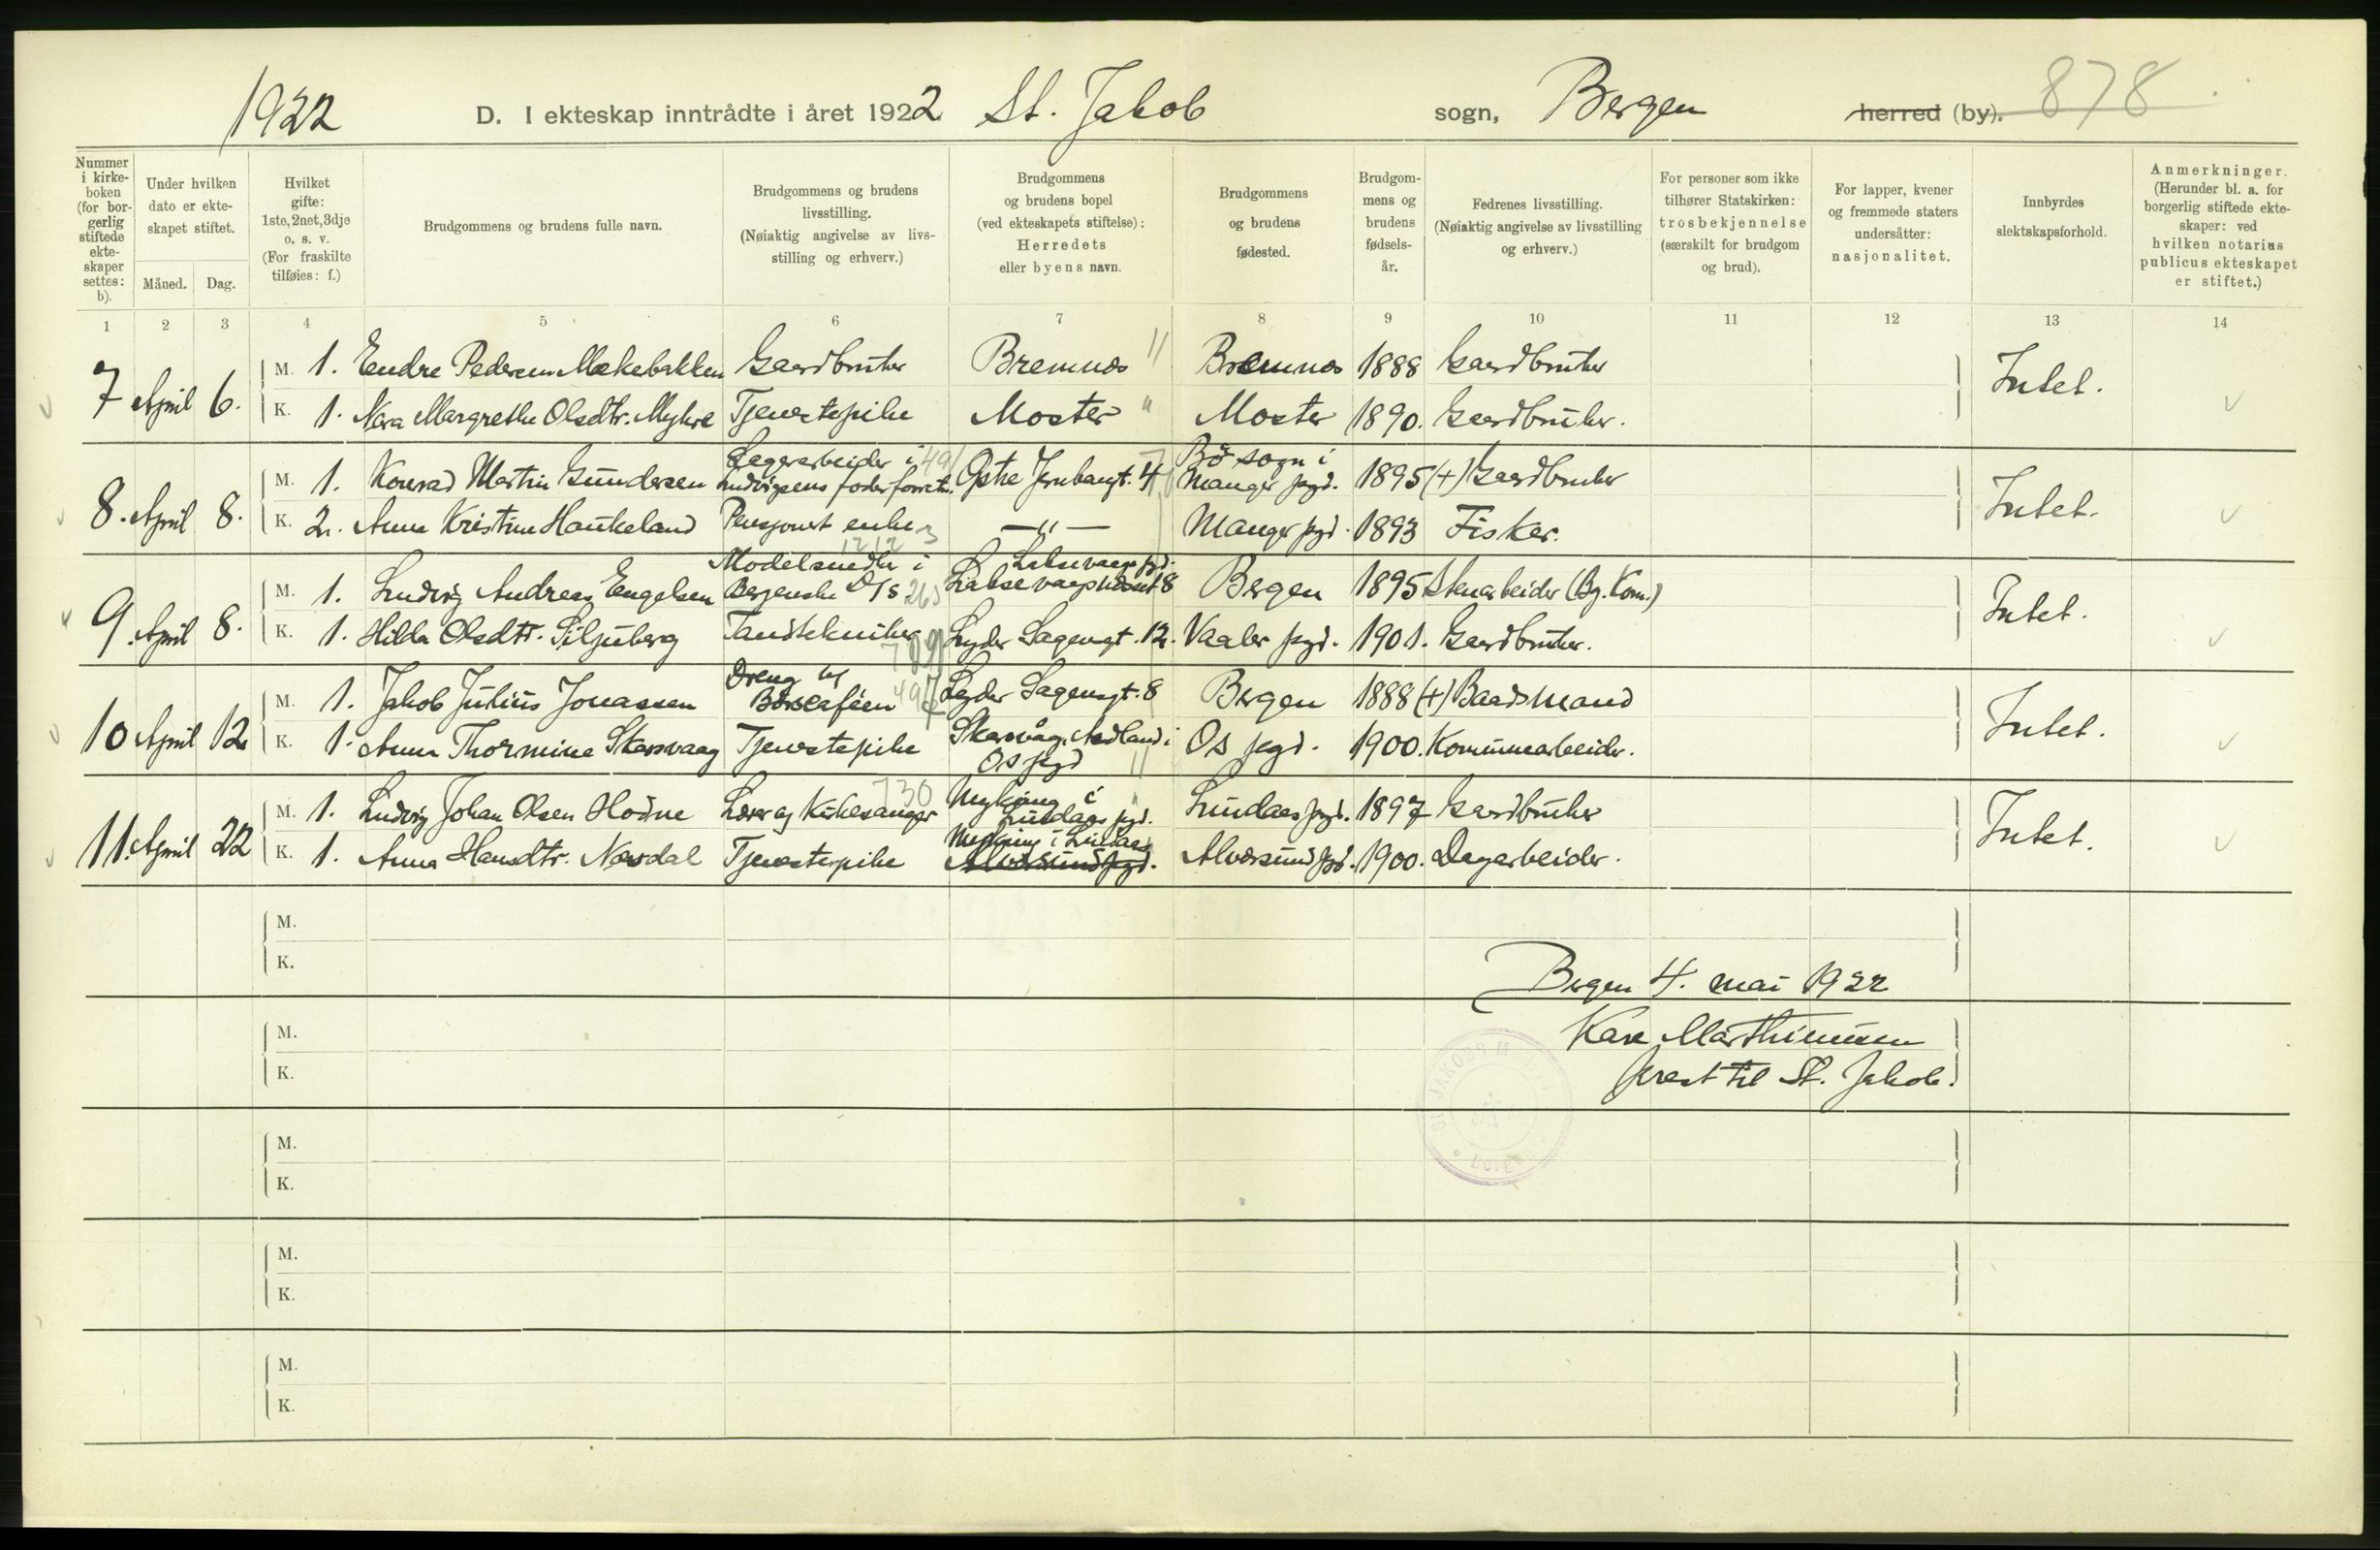 1922 D. I ekteskap inntrådte i året 1922 St. Jakob sogn, Bergen herred (by). 878
Nummer i kirkeboken (for borgerlig stiftede ekteskaper settes: b).
Under hvilken dato er ekteskapet stiftet.
Måned. Dag.
Hvilket gifte: 1ste, 2net, 3dje o. s. v. (For fraskilte tilføies: f.)
Brudgommens og brudens fulle navn.
Brudgommens og brudens livsstilling. (Nøiaktig angivelse av livsstilling og erhverv.)
Brudgommens og brudens bopel (ved ekteskapets stiftelse): Herredets eller byens navn.
Brudgommens og brudens fødested.
Brudgommens og brudens fødselsår.
Fedrenes livsstilling. (Nøiaktig angivelse av livsstilling og erhverv.)
For personer som ikke tilhører Statskirken: trosbekjennelse (særskilt for brudgom og brud).
For lapper, kvener og fremmede staters undersåtter: nasjonalitet.
Innbyrdes slektskapsforhold.
Anmerkninger. (Herunder bl. a. for borgerlig stiftede ekteskaper: ved hvilken notarius publicus ekteskapet er stiftet.)
1 2 3 4 5 6 7 8 9 10 11 12 13 14
7 April 6. M. 1. Endre Pedersen Mækebakken Gaardbruker Bremnes " Bremnes 1888 Gaardbruker Intet.
K. 1. Nora Margrethe Olsdtr. Myhre Tjenestepike Moster " Moster 1890. Gaardbruker.
8. April 8. M. 1. Konrad Martin Gundersen Lagerarbeider i Ludvigsens foderforretn. Østre Jernbanegt. 4 Bø sogn i Manger pgd. 1895 (+) Gaardbruker Intet.
K. 2. Anna Kristine Haukeland Pensjonert enke —"— Manger pgd. 1893 Fisker.
9. April 8. M. 1. Ludvig Andreas Engelsen Modelsnedker i Bergenske D/S 265 Laksevaag pgd. Laksevaagnesset 8 Bergen 1895 Stenarbeider (Bg. Kom.) Intet.
K. 1. Hilda Olsdtr. Siljuberg Tandtekniker Lyder Sagensgt. 12. Vaaler pgd. 1901. Gaardbruker.
10 April 12. M. 1. Jakob Julius Jonassen Dreng ved Børscafeen 497 Lyder Sagensgt. 8 Bergen 1888 (+) Baadsmand Intet.
K. 1. Anna Thormine Skarsvaag Tjenestepike Skarsvåg, Nedland i Os pgd " Os pgd. 1900. Kommunearbeider.
11. April 22 M. 1. Ludvig Johan Olsen Hodne Lærer og Kirkesanger 730 Myking i Lindaas pgd. Lindaas pgd. 1897 Gaardbruker Intet.
K. 1. Anna Hansdtr. Næsdal Tjenestepike Myking i Lindaas Alversund pgd. Alversund pgd. 1900. Dagarbeider.
M.
K.
Bergen 4. mai 1922
M. Kare Marthinussen
K. prest til St. Jakob.
M.
K.
M.
K.
M.
K.